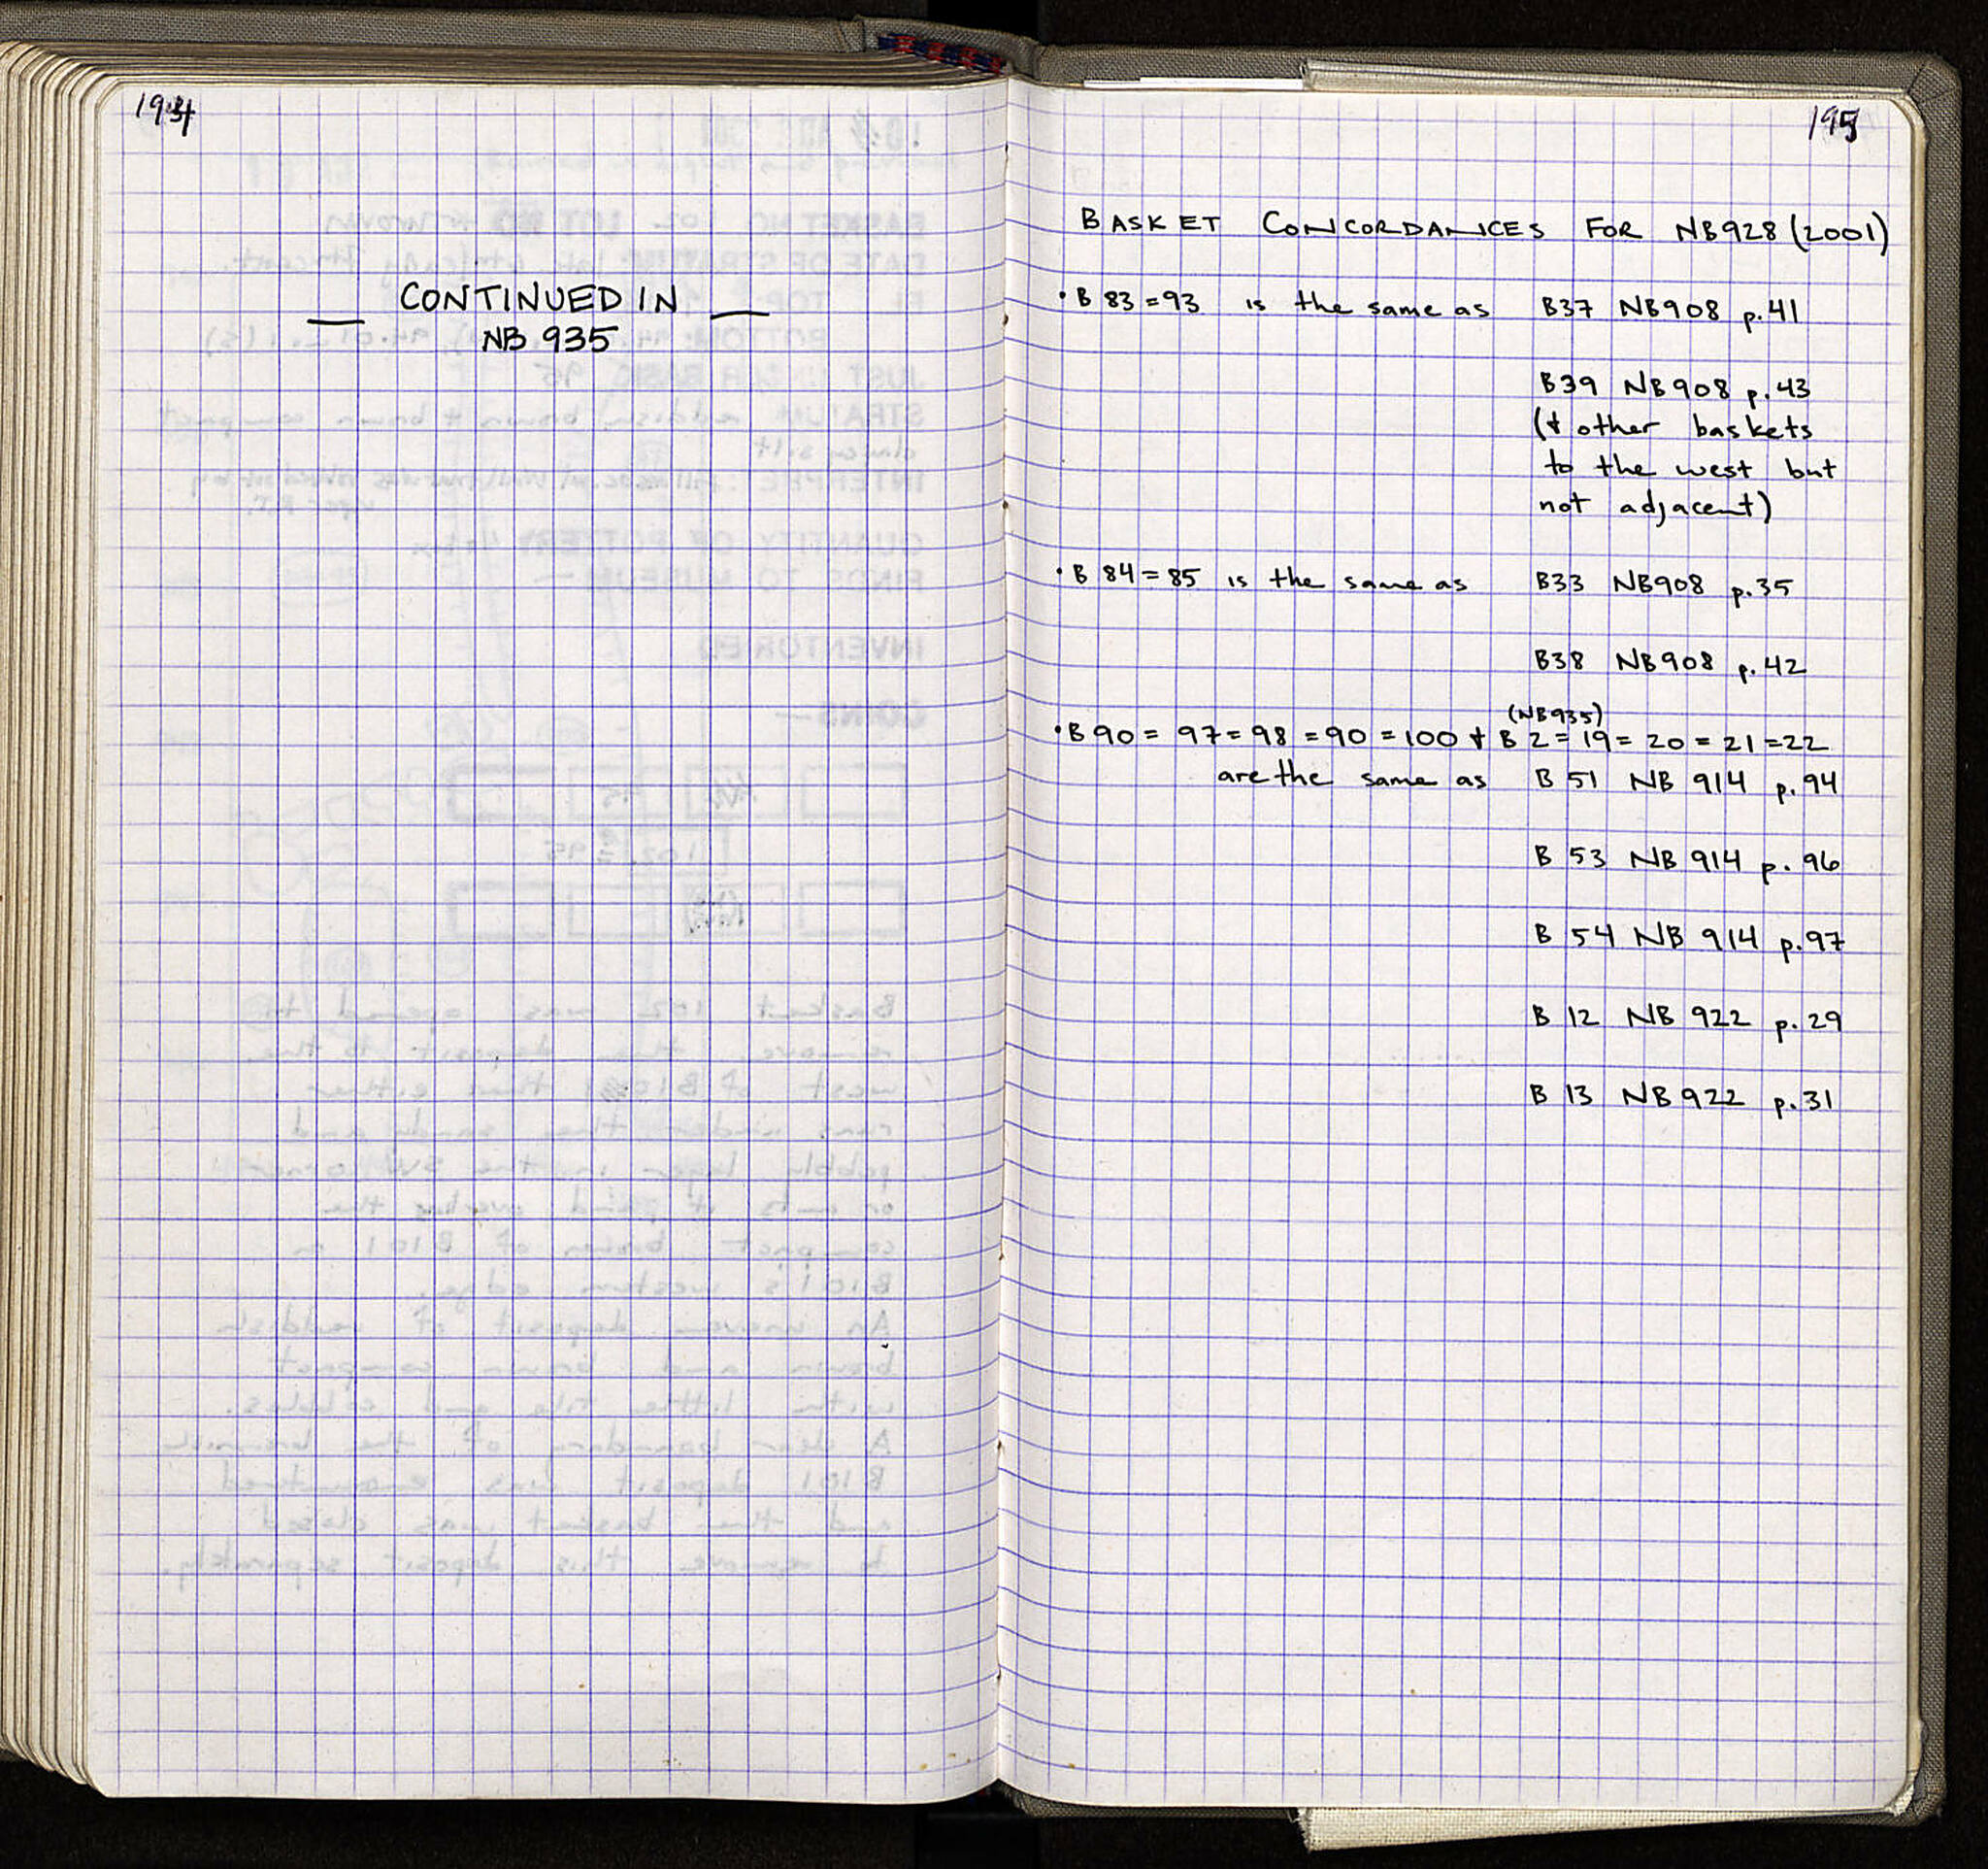 194
CONTINUED IN
NB 935
195
BASKET CONCORDANCES FOR NB928 (2001)
• B 83 = 93 is the same as B37 NB908 p.41
B39 NB908 p.43
(+ other baskets
to the west but
not adjacent)
• B 84 = 85 is the same as B33 NB908 p.35
B38 NB908 p.42
(NB935)
• B 90 = 97 = 98 = 90 = 100 + B 2 = 19 = 20 = 21 = 22
are the same as B 51 NB 914 p. 94
B 53 NB 914 p. 96
B 54 NB 914 p.97
B 12 NB 922 p.29
B 13 NB 922 p.31